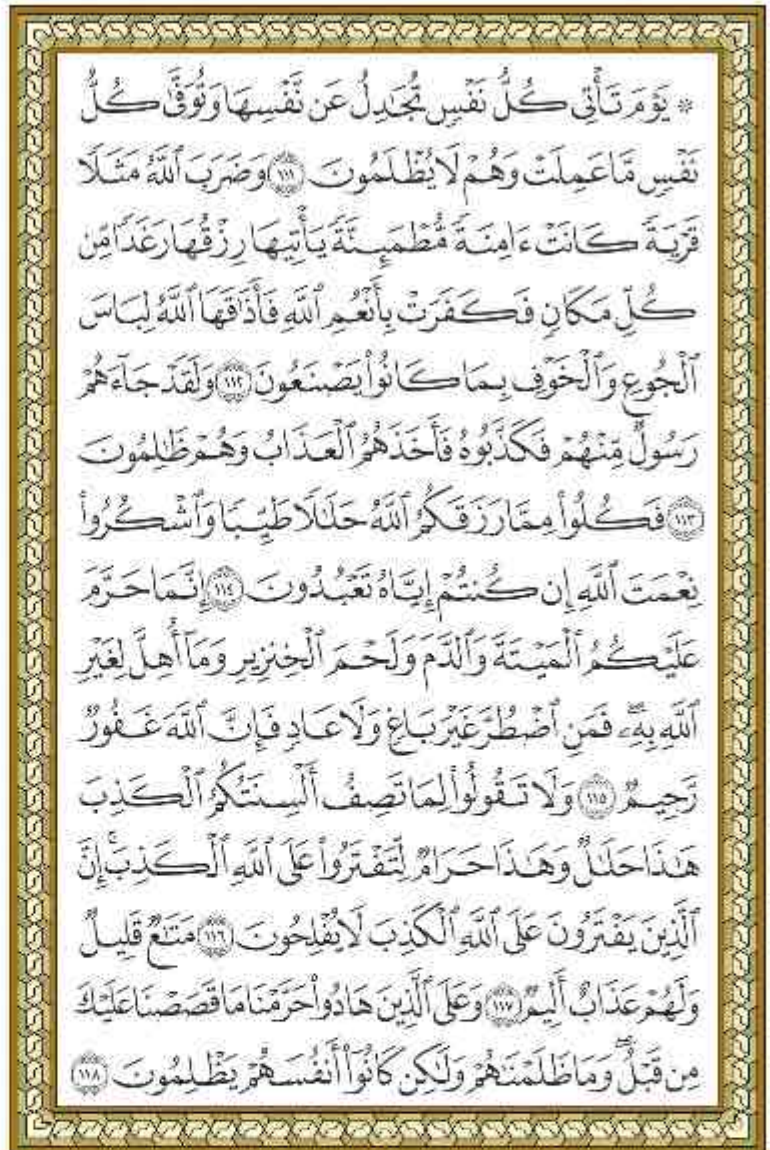 ۞ يَوْمَ تَأْتِى كُلُّ نَفْسٍ تُجَٰدِلُ عَن نَّفْسِهَا وَتُوَفَّىٰ كُلُّ
نَفْسٍ مَّا عَمِلَتْ وَهُمْ لَا يُظْلَمُونَ ١١١ وَضَرَبَ ٱللَّهُ مَثَلًا
قَرْيَةً كَانَتْ ءَامِنَةً مُّطْمَئِنَّةً يَأْتِيهَا رِزْقُهَا رَغَدًا مِّن
كُلِّ مَكَانٍ فَكَفَرَتْ بِأَنْعُمِ ٱللَّهِ فَأَذَٰقَهَا ٱللَّهُ لِبَاسَ
ٱلْجُوعِ وَٱلْخَوْفِ بِمَا كَانُوا۟ يَصْنَعُونَ ١١٢ وَلَقَدْ جَآءَهُمْ
رَسُولٌ مِّنْهُمْ فَكَذَّبُوهُ فَأَخَذَهُمُ ٱلْعَذَابُ وَهُمْ ظَٰلِمُونَ
١١٣ فَكُلُوا۟ مِمَّا رَزَقَكُمُ ٱللَّهُ حَلَٰلًا طَيِّبًا وَٱشْكُرُوا۟
نِعْمَتَ ٱللَّهِ إِن كُنتُمْ إِيَّاهُ تَعْبُدُونَ ١١٤ إِنَّمَا حَرَّمَ
عَلَيْكُمُ ٱلْمَيْتَةَ وَٱلدَّمَ وَلَحْمَ ٱلْخِنزِيرِ وَمَآ أُهِلَّ لِغَيْرِ
ٱللَّهِ بِهِۦۖ فَمَنِ ٱضْطُرَّ غَيْرَ بَاغٍ وَلَا عَادٍ فَإِنَّ ٱللَّهَ غَفُورٌ
رَّحِيمٌ ١١٥ وَلَا تَقُولُوا۟ لِمَا تَصِفُ أَلْسِنَتُكُمُ ٱلْكَذِبَ
هَٰذَا حَلَٰلٌ وَهَٰذَا حَرَامٌ لِّتَفْتَرُوا۟ عَلَى ٱللَّهِ ٱلْكَذِبَۚ إِنَّ
ٱلَّذِينَ يَفْتَرُونَ عَلَى ٱللَّهِ ٱلْكَذِبَ لَا يُفْلِحُونَ ١١٦ مَتَٰعٌ قَلِيلٌ
وَلَهُمْ عَذَابٌ أَلِيمٌ ١١٧ وَعَلَى ٱلَّذِينَ هَادُوا۟ حَرَّمْنَا مَا قَصَصْنَا عَلَيْكَ
مِن قَبْلُۖ وَمَا ظَلَمْنَٰهُمْ وَلَٰكِن كَانُوٓا۟ أَنفُسَهُمْ يَظْلِمُونَ ١١٨